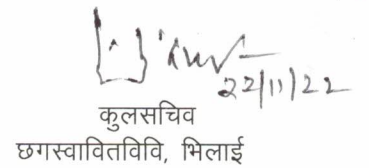 22/11/22
कुलसचिव
छगस्वावितविवि, भिलाई